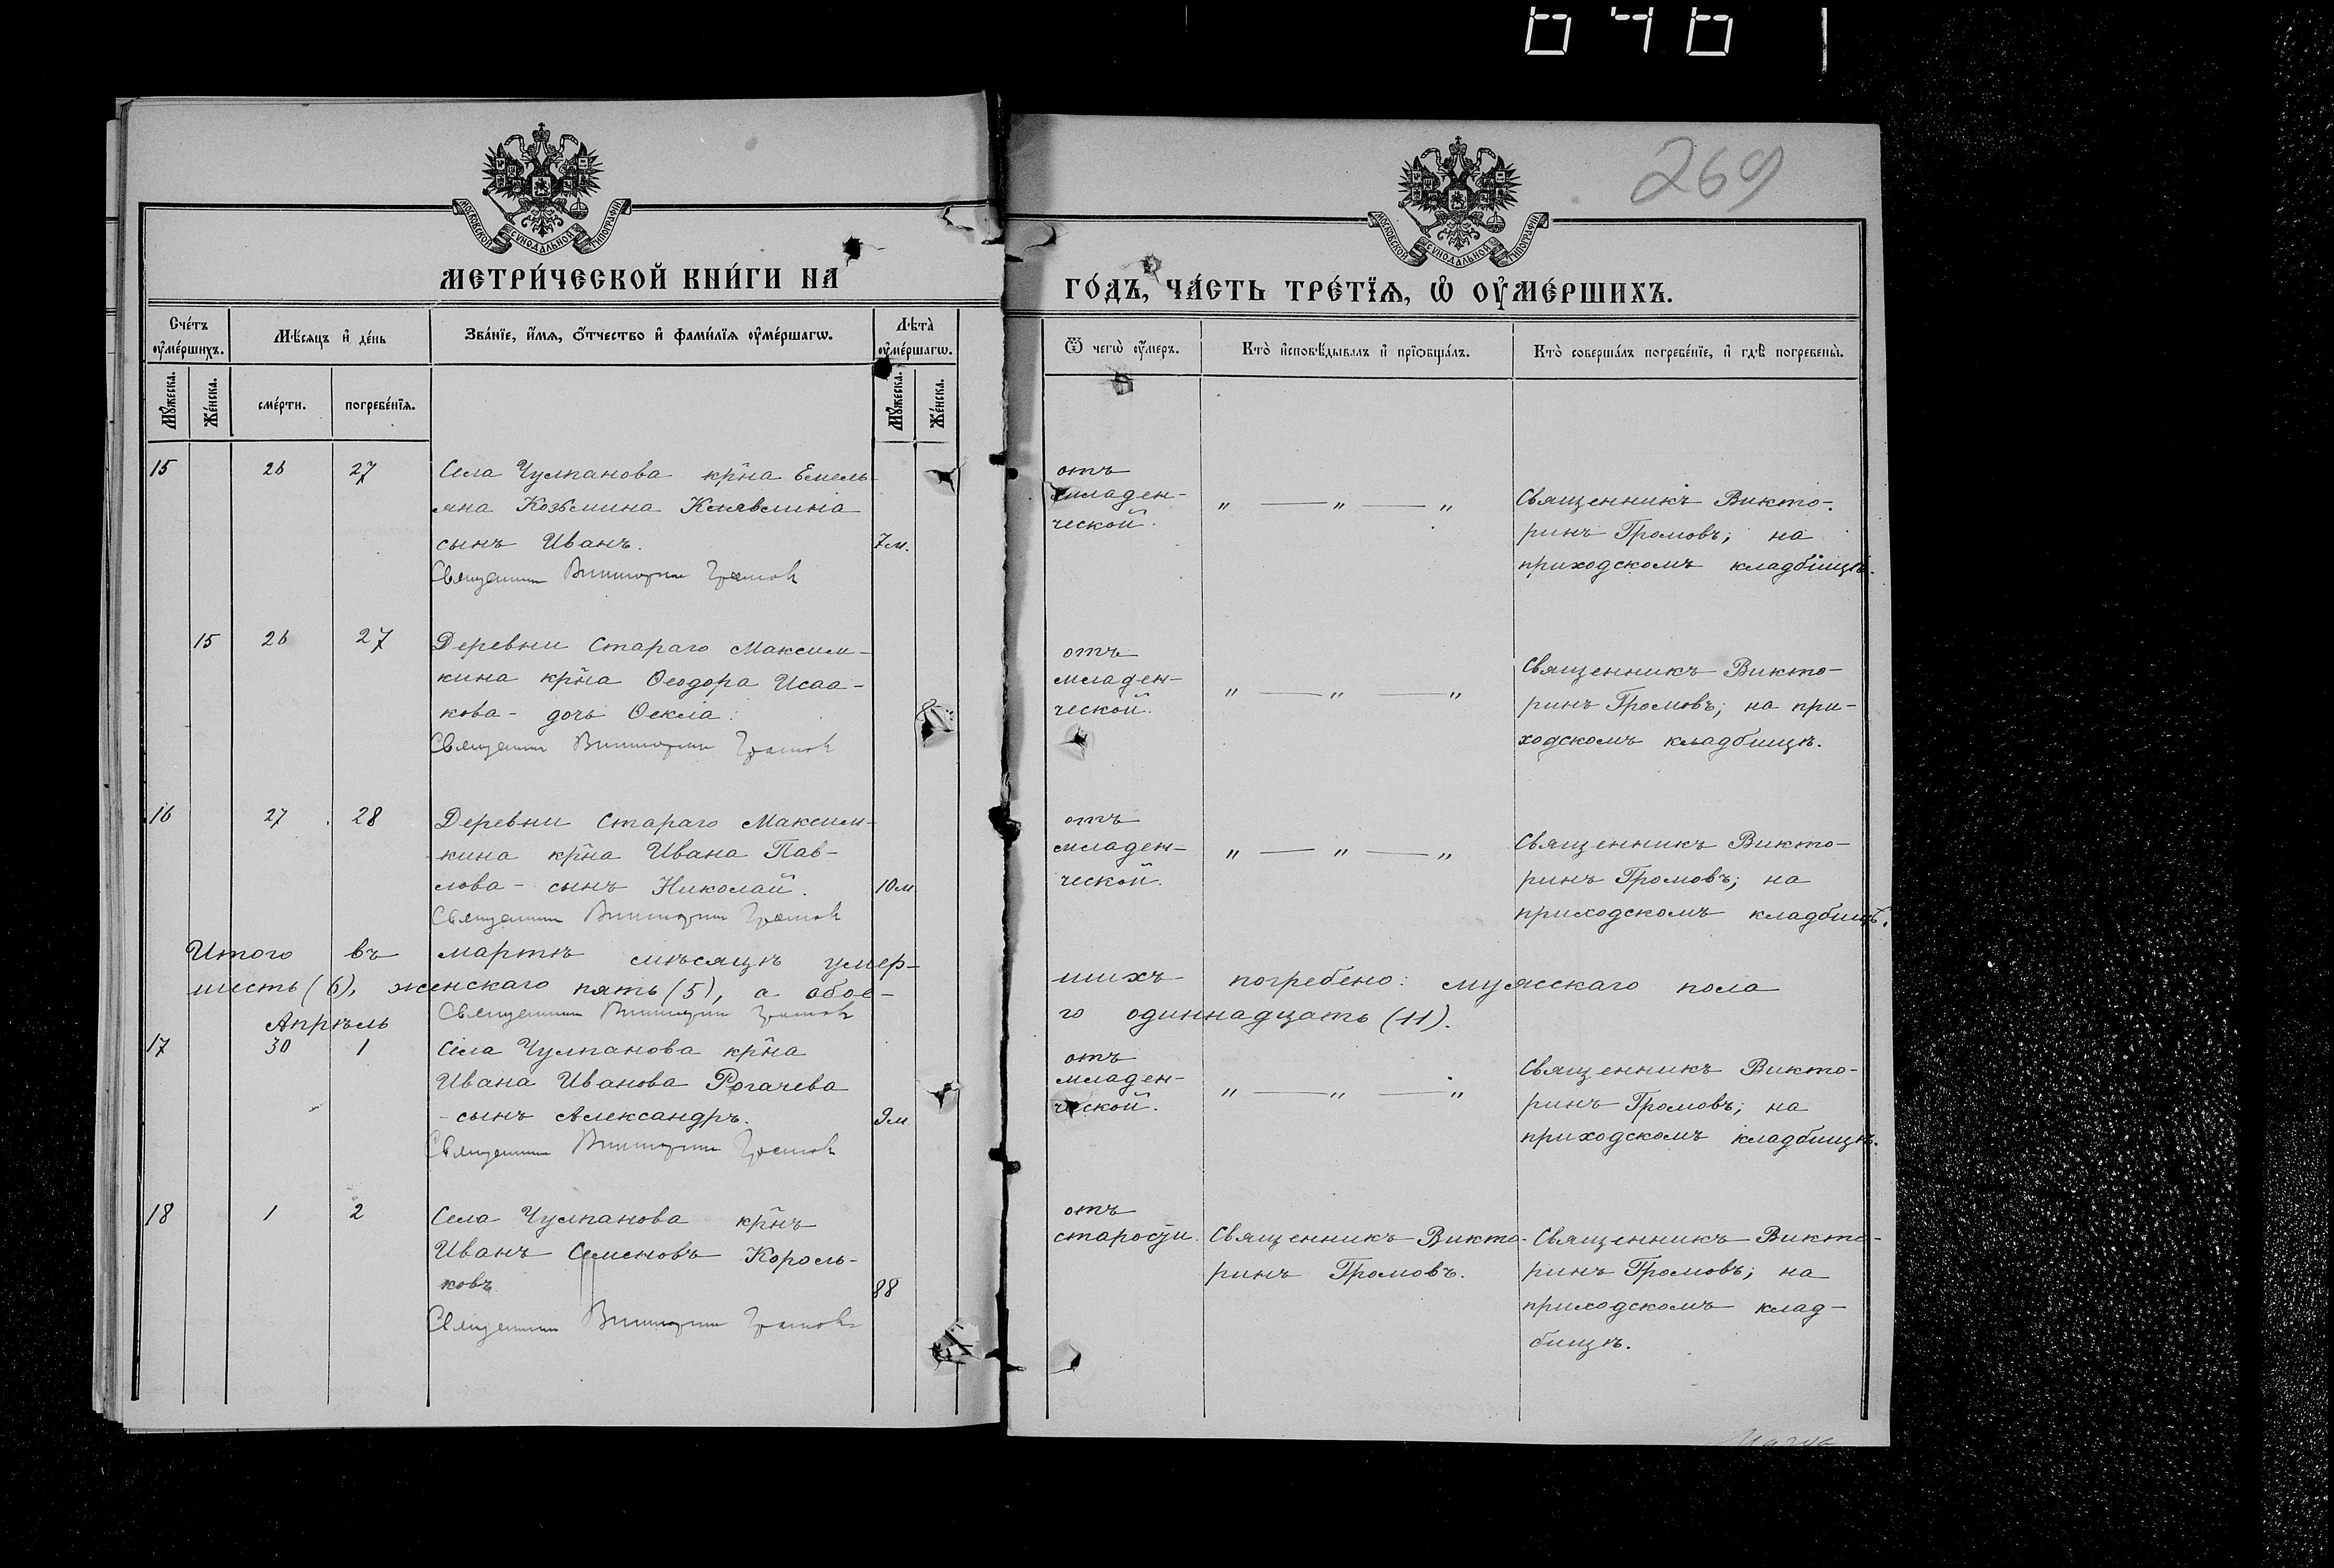 6461
269
МОСКОВСКОЙ СѴНОДАЛЬНОЙ ТИПОГРАФІИ
МОСКОВСКОЙ СѴНОДАЛЬНОЙ ТИПОГРАФІИ
МЕТРИ́ЧЕСКОЙ КНИ́ГИ НА
ГО́ДЪ, ЧА́СТЬ ТРЕ́ТЇѦ, Ѡ҆ ОУ҆МЕ́РШИХЪ.
Сче́тъ оу҆ме́ршихъ.
Мѣ́сяцъ и҆ де́нь
Зва́нїе, и҆́мя, ѻ҆́тчество и҆ фами́лїя оу҆ме́ршагѡ.
Лѣ́та̀ оу҆ме́ршагѡ.
Ѿ чегѡ̀ оу҆́меръ.
Кто̀ и҆сповѣ́дывалъ и҆ прїѡбща́лъ.
Кто̀ соверша́лъ погребе́нїе, и҆ гдѣ̀ погребены̀.
Му́жеска.
Же́нска.
сме́рти.
погребе́нїя.
Му́жеска.
Же́нска.
15 26 27 Села Чулпанова кр̃на Емель-
яна Козьмина Клявлина
сынъ Иванъ. 7м.
Священникъ Викторинъ Громовъ
отъ
младен-
ческой.
„ — „ — „
Священникъ Викто-
ринъ Громовъ; на
приходскомъ кладбищѣ.
15 26 27 Деревни Стараго Максим-
кина кр̃на Ѳеодора Исаа-
кова - дочь Ѳекла.
Священникъ Викторинъ Громовъ
отъ
младен-
ческой.
„ — „ — „
Священникъ Викто-
ринъ Громовъ; на при-
ходскомъ кладбищѣ.
16 27 28 Деревни Стараго Максим-
кина кр̃на Ивана Пав-
лова - сынъ Николай. 10м
Священникъ Викторинъ Громовъ
отъ
младен-
ческой.
„ — „ — „
Священникъ Викто-
ринъ Громовъ; на
приходскомъ кладбищѣ.
Итого въ мартѣ мѣсяцѣ умер-
шихъ погребено: мужскаго пола
шесть (6), женскаго пять (5), а обое-
го одиннадцать (11).
Священникъ Викторинъ Громовъ
Апрѣль
17 30 1 Села Чулпанова кр̃на
Ивана Иванова Рогачева
- сынъ Александръ. 9м.
Священникъ Викторинъ Громовъ
отъ
младен-
ческой.
„ — „ — „
Священникъ Викто-
ринъ Громовъ; на
приходскомъ кладбищѣ.
18 1 2 Села Чулпанова кр̃нъ
Иванъ Семеновъ Король-
ковъ 88
Священникъ Викторинъ Громовъ
отъ
старости.
Священникъ Викто-
ринъ Громовъ.
Священникъ Викто-
ринъ Громовъ; на
приходскомъ клад-
бищѣ.